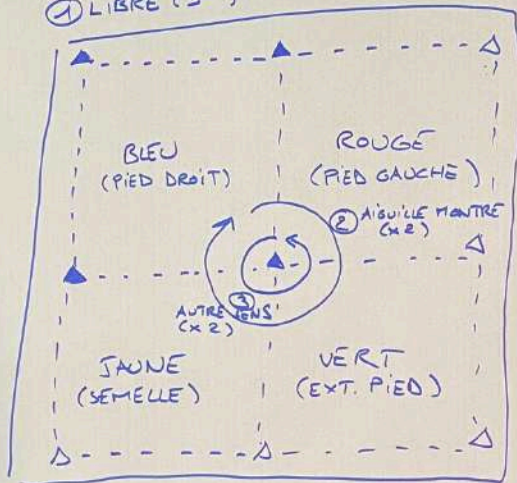 ① LIBRE
BLEU
(PIED DROIT)
ROUGE
(PIED GAUCHE)
② AIGUILLE MONTRE
(x2)
③
AUTRE SENS
(x2)
JAUNE
(SEMELLE)
VERT
(EXT. PIED)